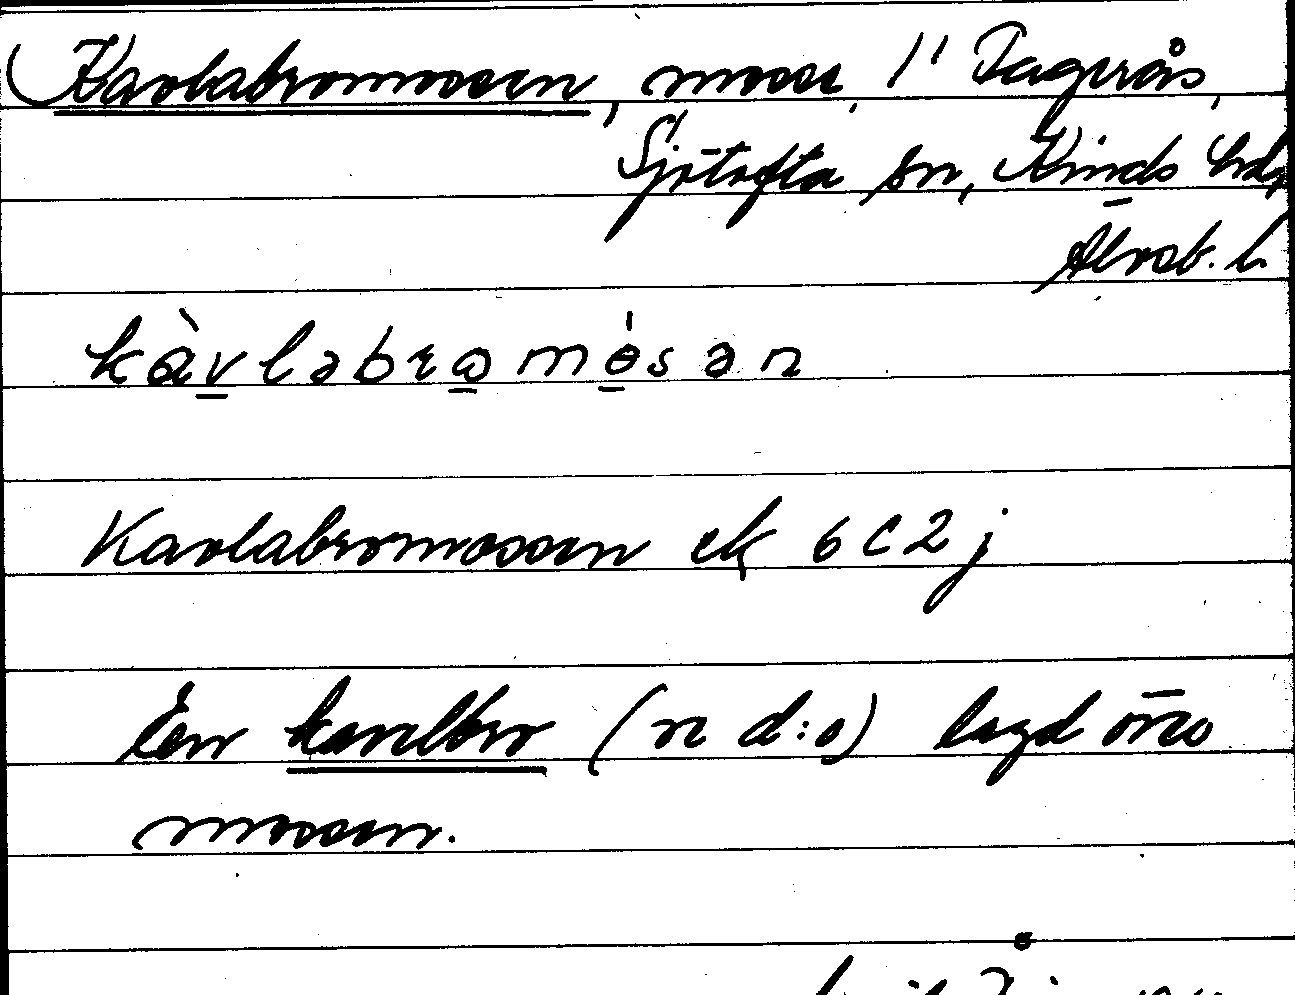 Kavlabromossen, mosse, 1" Tagerås,
Sjötofta sn, Kinds hd,
Älvsb. l.
kàvləbrωmósən
Kavlabromossen ek 6 C 2 j
En kavelbro (n d:o) lagd över
mossen.